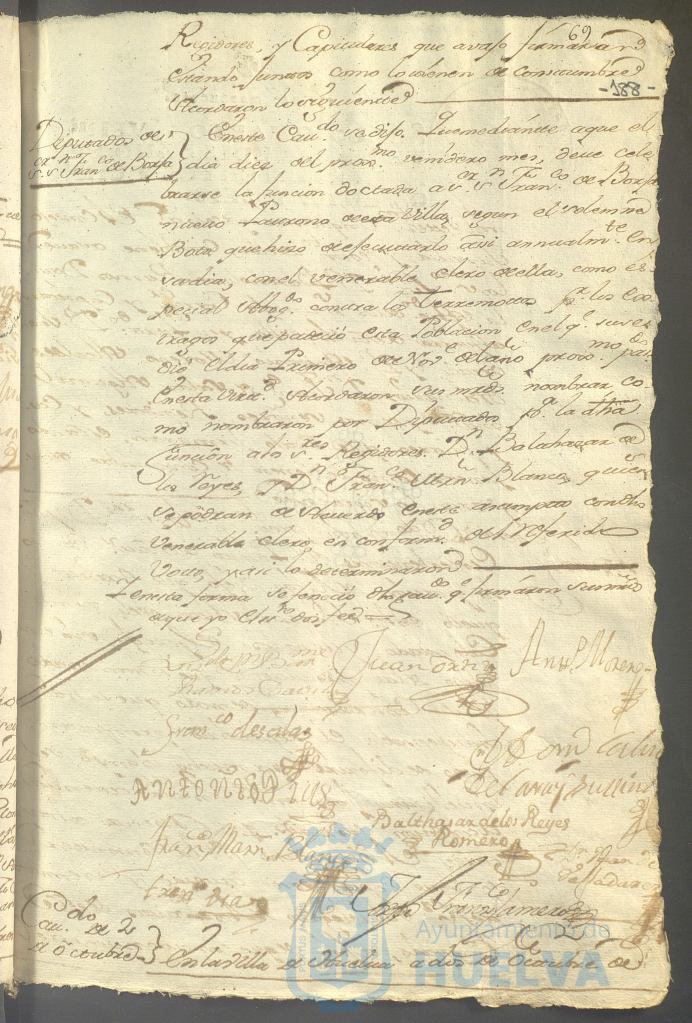 69
Regidores, y Capitulares que avajo firmarán
estando juntos como lo tienen de Constumbre
Acordaron lo siguiente
-188-
Diputados de
Sr. Sn. Franco. de Borja
En este Cavdo. se dijo, Que mediante a que el
dia diez del proxmo. venidero mes, deve cele-
brarse la funcion dottada a Sr. Sn. Franco. de Borja
nuevo Patrono de esta Villa, segun el solemne
Boto que hizo de efectuarlo assi annualmte. en
su dia, con el venerable clero de ella, como es-
pecial Abogdo. contra los Terremotos pr. los es-
tragos que padeció esta Poblacion en el qe. suce-
dió el dia Primero de Nove. del año proxmo. pasdo.
En esta virtd. Acordaron sus mrds. nombrar co-
mo nombraron por Diputados pa. la dha
función a los Sres. Regidores Dn. Balthazar de
los Reyes, y Dn. Franco. Martn. Blanco, quie-
se podran de Acuerdo en este asumpto con dho
venerable clero en conformd. del referido
Voto, y asi lo determinaron
En esta forma se fenecio dho Cavdo. qe. firmaron sus mrds
de que yo el essno. doi fee
Juan
Anto. Moreno
Franco. de salas
Balthazar de los Reyes
Romero
Fran. Marn. Blanco
Fran. Diaz
Cavdo. de 2
de Octubre
En la villa de Huelva a dos de Octubre de
Ayuntamiento de
HUELVA